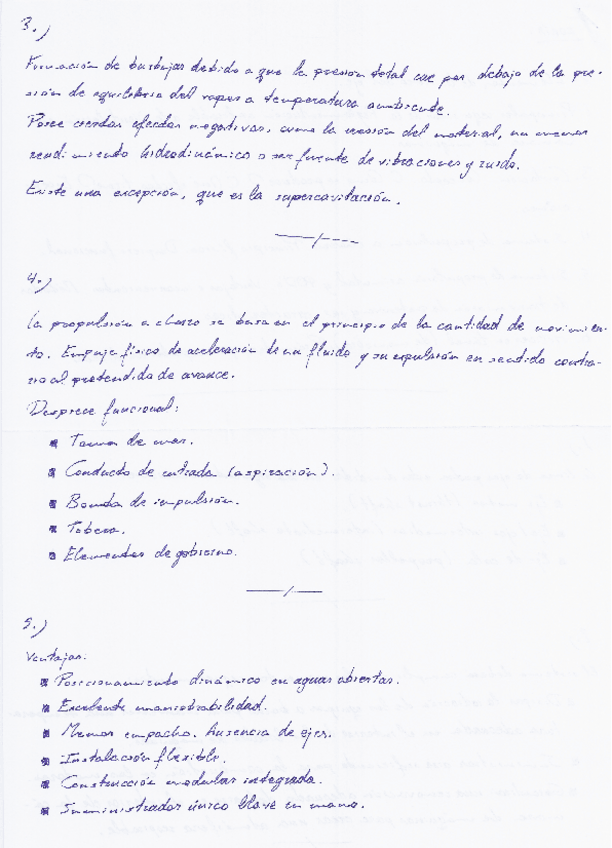 3.)
Formación de burbujas debido a que la presión total cae por debajo de la pre-
sión de equilibrio del vapor a temperatura ambiente.
Posee ciertos efectos negativos, como la erosión del material, un menor
rendimiento hidrodinámico o ser fuente de vibraciones y ruido.
Existe una excepción, que es la supercavitación.
4.)
La propulsión a chorro se basa en el principio de la cantidad de movimien-
to. Empuje físico de aceleración de un fluido y su expulsión en sentido contra-
rio al pretendido de avance.
Despiece funcional:
Toma de mar.
Conducto de entrada (aspiración).
Bomba de impulsión.
Tobera.
Elementos de gobierno.
5.)
Ventajas:
Posicionamiento dinámico en aguas abiertas.
Excelente maniobrabilidad.
Menor empacho. Ausencia de ejes.
Instalación flexible.
Construcción modular integrada.
Suministrador único llave en mano.